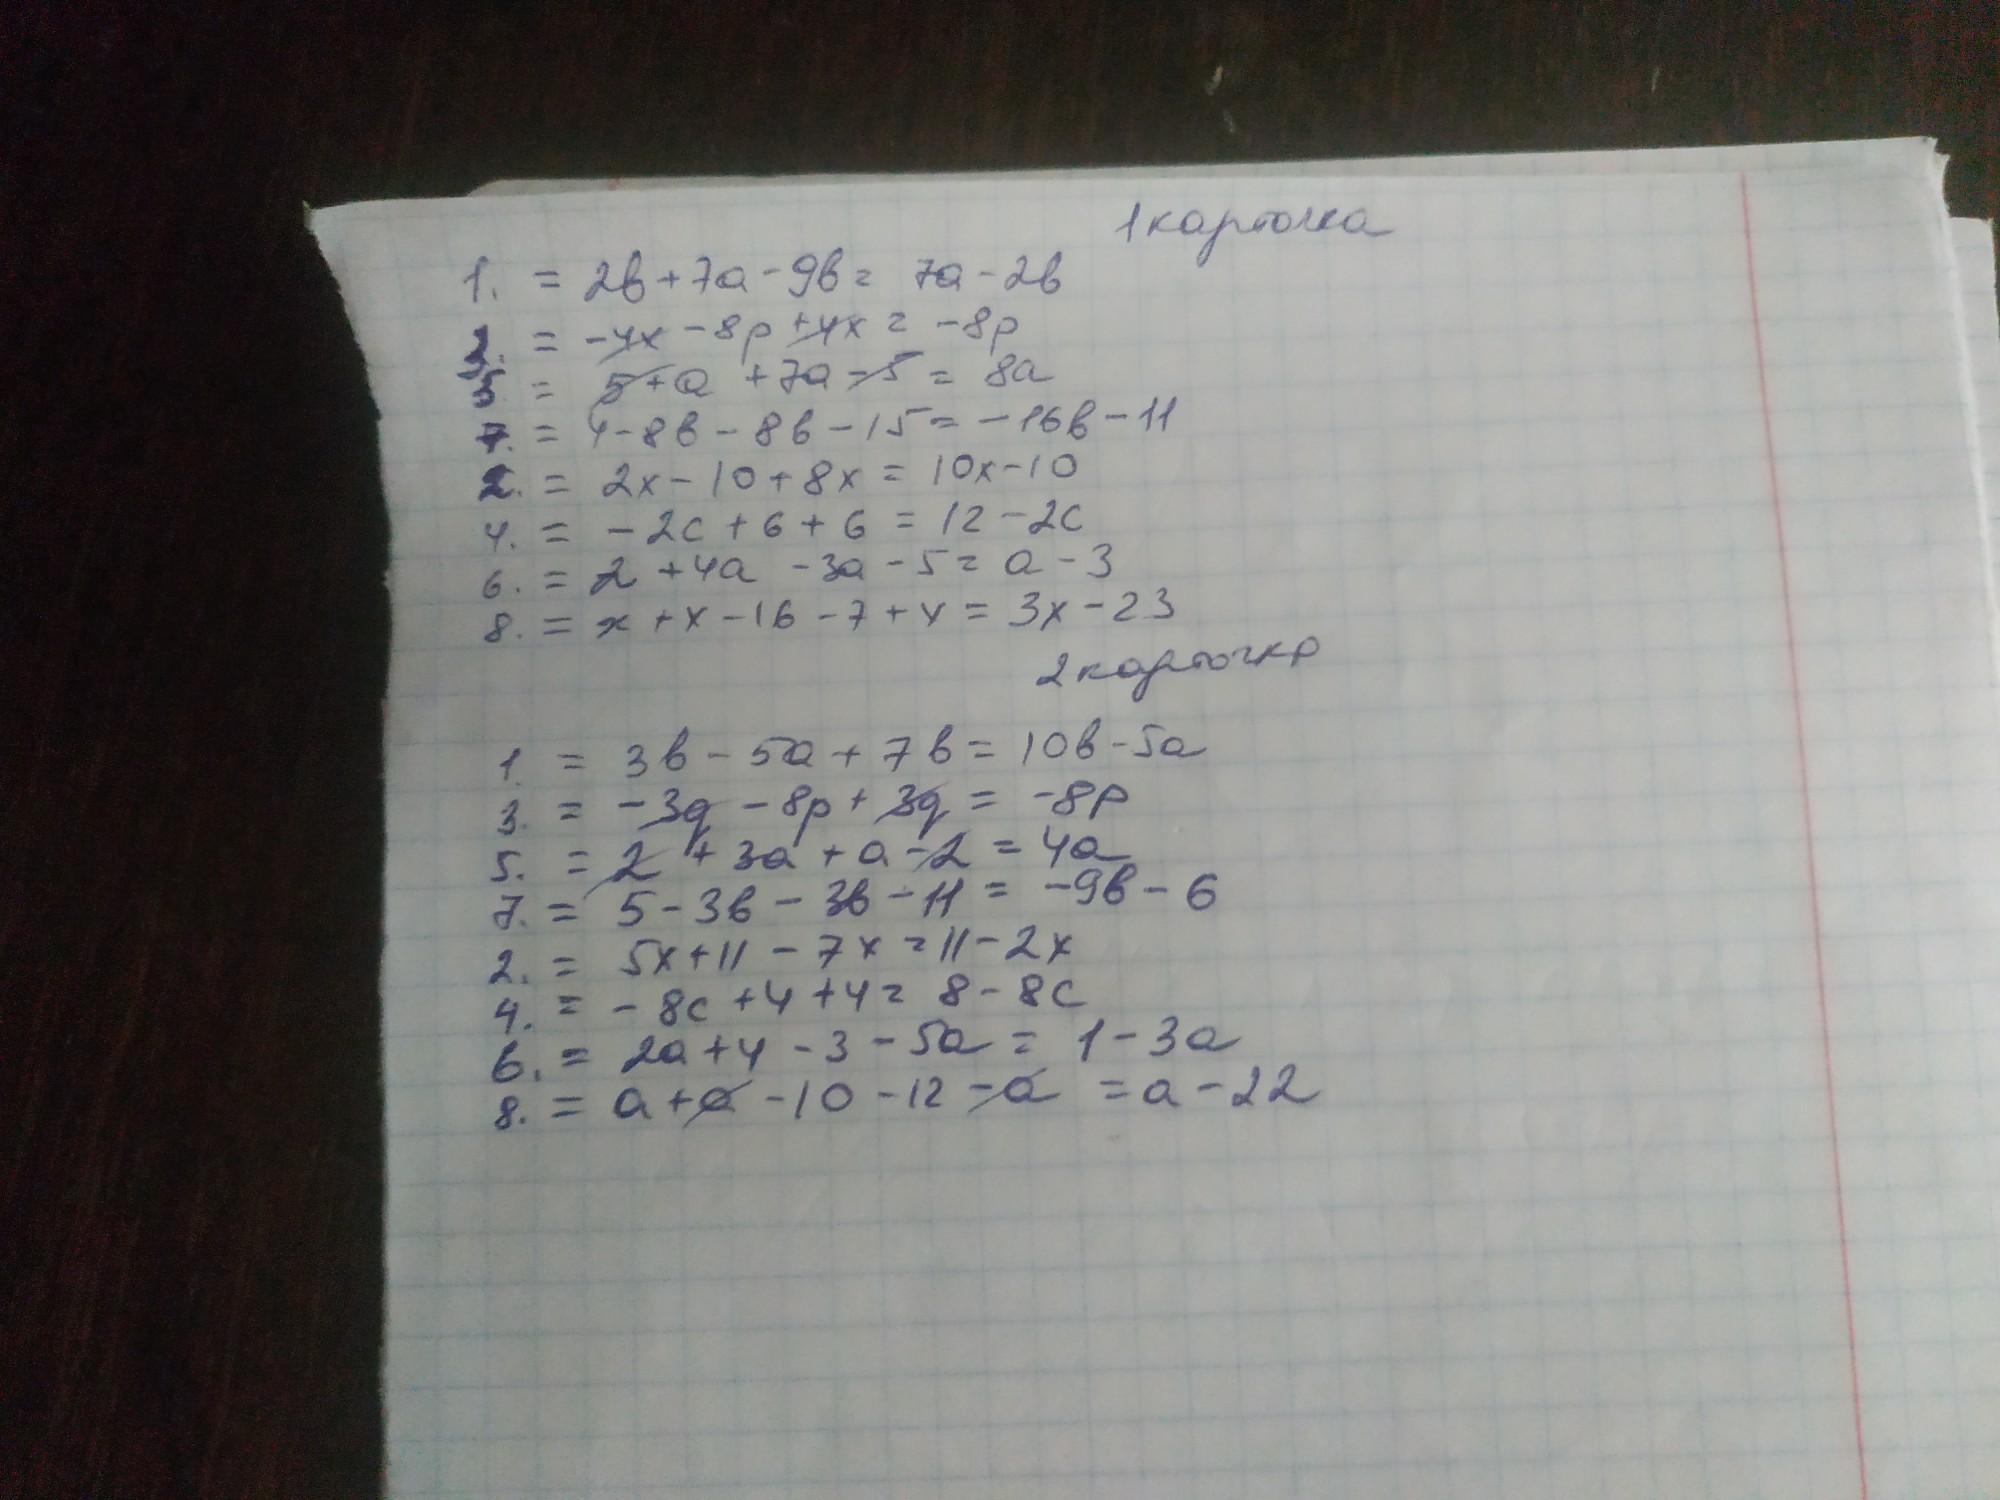 1 карточка
1. = 2b + 7a - 9b = 7a - 2b
3. = -4x - 8p + 4x = -8p
5. = 5 + a + 7a - 5 = 8a
7. = 4 - 8b - 8b - 15 = -16b - 11
2. = 2x - 10 + 8x = 10x - 10
4. = -2c + 6 + 6 = 12 - 2c
6. = 2 + 4a - 3a - 5 = a - 3
8. = x + x - 16 - 7 + x = 3x - 23
2 карточка
1. = 3b - 5a + 7b = 10b - 5a
3. = -3q - 8p + 3q = -8p
5. = 2 + 3a + a - 2 = 4a
7. = 5 - 3b - 3b - 11 = -9b - 6
2. = 5x + 11 - 7x = 11 - 2x
4. = -8c + 4 + 4 = 8 - 8c
6. = 2a + 4 - 3 - 5a = 1 - 3a
8. = a + a - 10 - 12 - a = a - 22